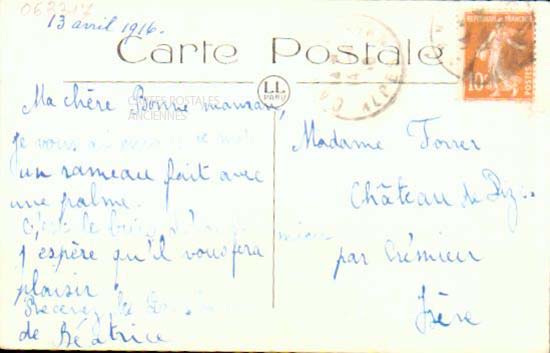 062217
13 avril 1916.
Carte Postale
REPUBLIQUE FRANÇAISE
10c
POSTES
LL
PARIS
ALPES
CARTES POSTALES
ANCIENNES
Ma chère Bonne maman,
je vous ai
un rameau fait avec
une palme.
c'est le
j'espère qu'il vous fera
plaisir
Recevez les
de Béatrice
Madame Forrer
Château de
par Crémieu
Isère